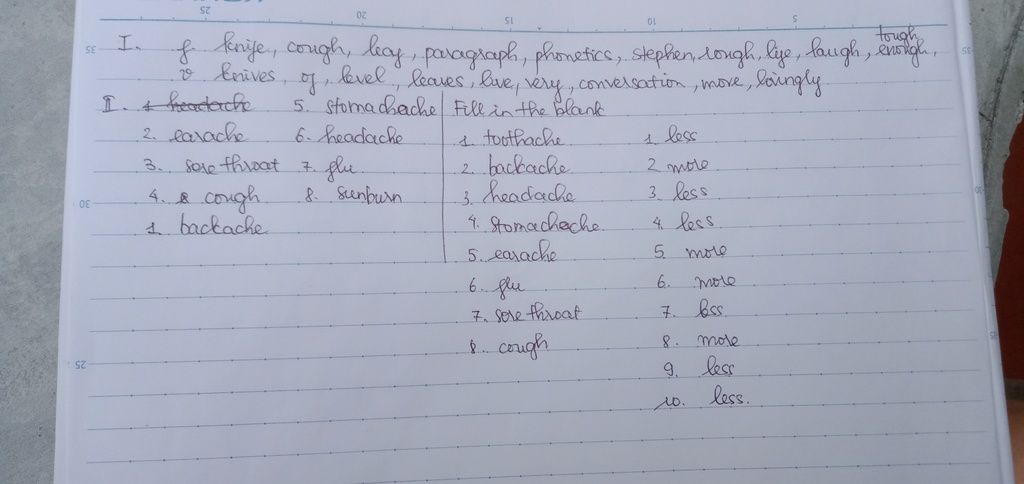 I. f knife, cough, leaf, paragraph, phonetics, stephen, rough, life, laugh, tough, enough,
v knives, of, level, leaves, live, very, conversation, move, lovingly
II. 1 headache 5. stomachache Fill in the blank
2. earache 6. headache 1. toothache 1. less
3. sore throat 7. flu 2. backache 2 more
4. cough 8. sunburn 3. headache 3. less
1. backache 4. stomacheche 4. less
5. earache 5. more
6. flu 6. more
7. sore throat 7. less
8. cough 8. more
9. less
10. less.
25
20
15
10
5
35
35
30
30
25
25